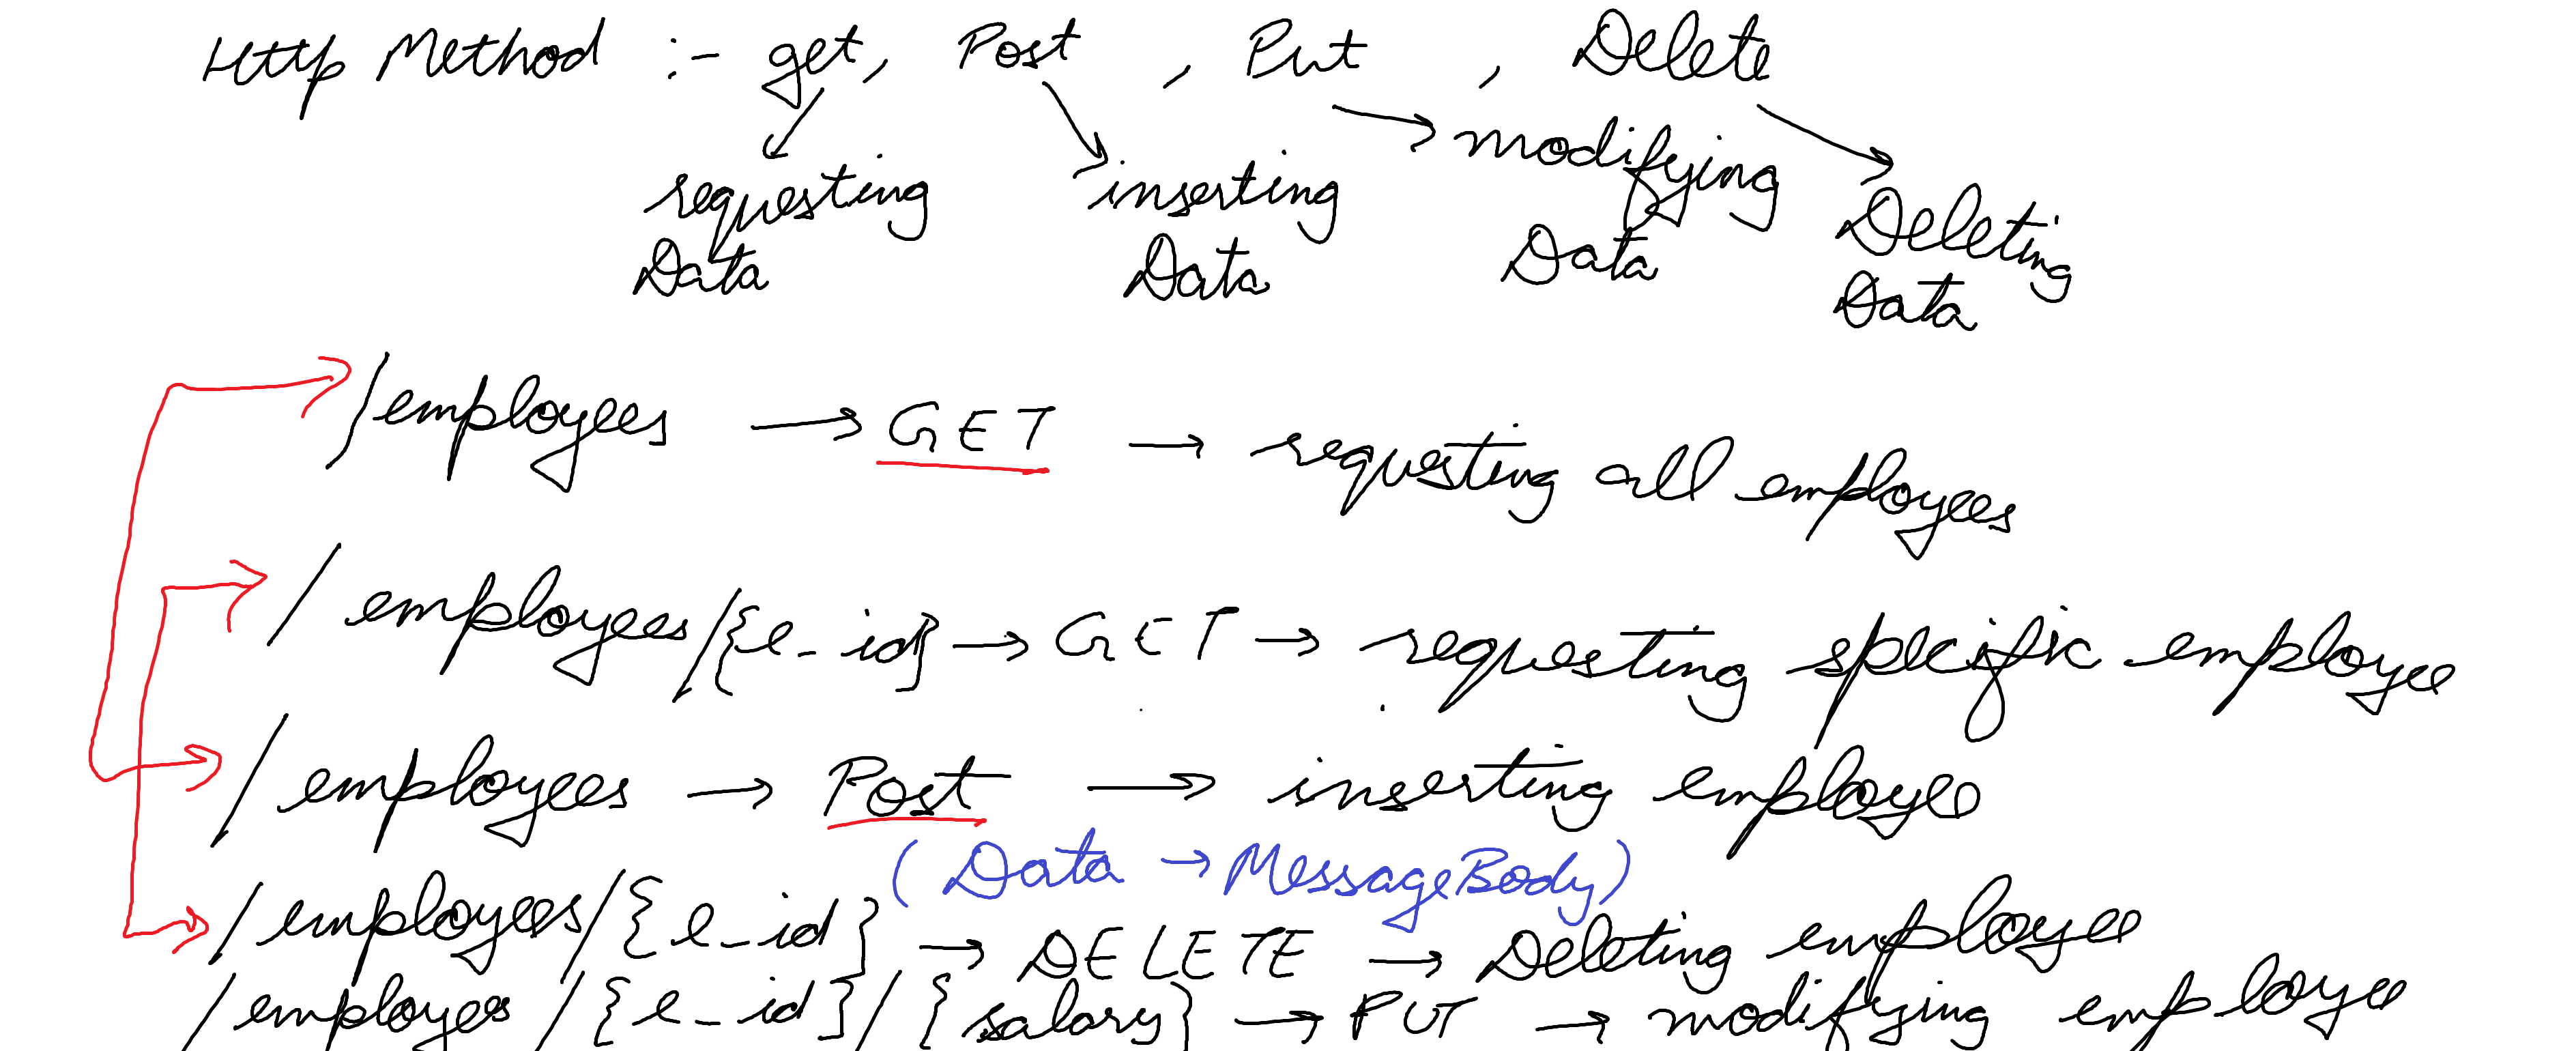 Http Method :- get, Post , Put , Delete
requesting Data
inserting Data
modifying Data
Deleting Data
/employees → GET → requesting all employees
/ employees/{e_id} → GET → requesting specific employee
/ employees → Post → inserting employee
( Data → MessageBody)
/ employees/{e_id} → DELETE → Deleting employee
/ employes /{e_id}/{salary} → PUT → modifying employee